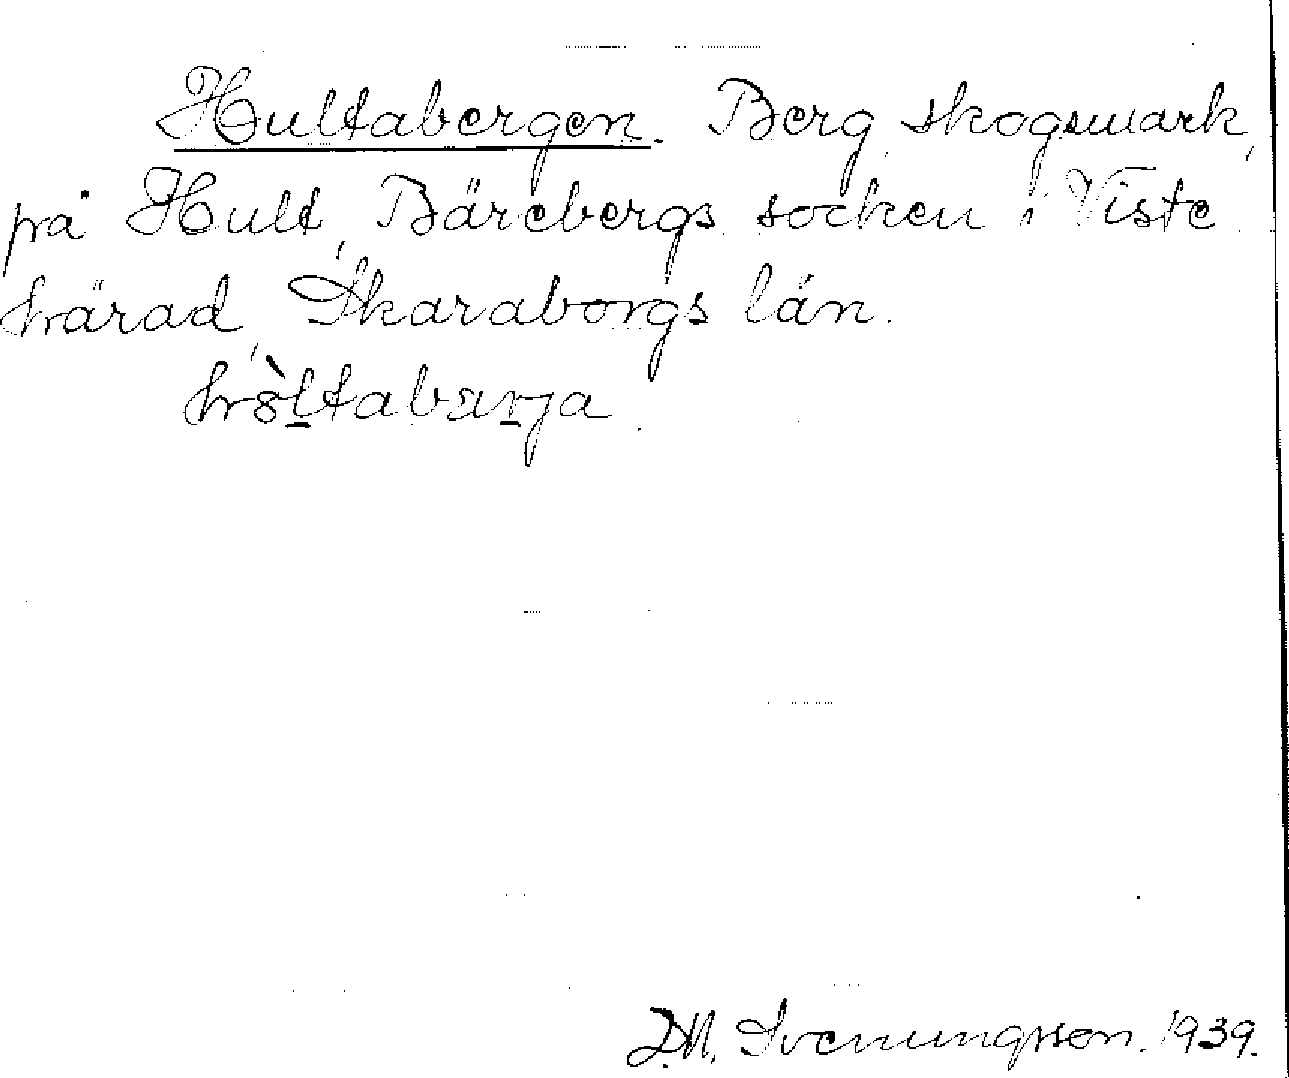 Hultabergen. Berg, skogsmark,
på Hult, Bärebergs socken i Viste
härad, Skaraborgs län.
D.M. Svenungsson. 1939.